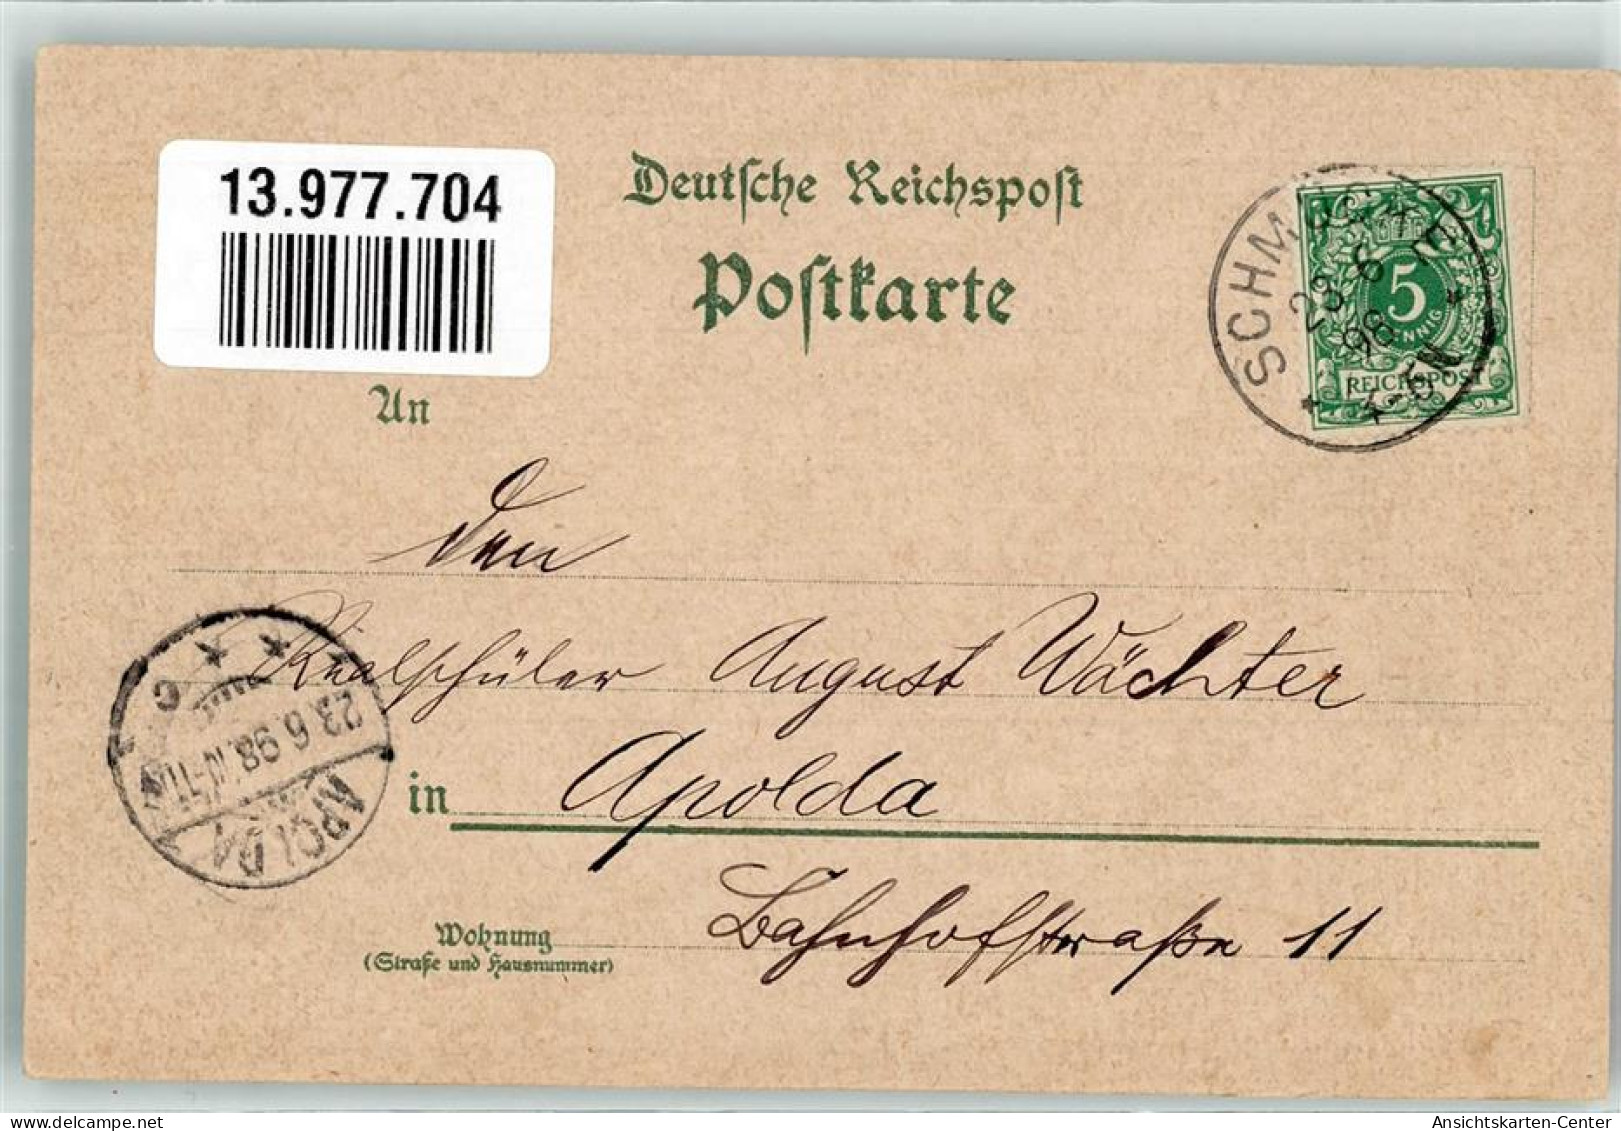 13.977.704
Deutsche Reichspost
Postkarte
SCHMÜCKE
23 6
98
4-5N
5
PFENNIG
REICHSPOST
An
Den
Realschüler August Wächter
in Apolda
Wohnung
(Straße und Hausnummer)
Bahnhofstraße 11
APOLDA
23.6.98.10-11
C
Ansichtskarten-Center